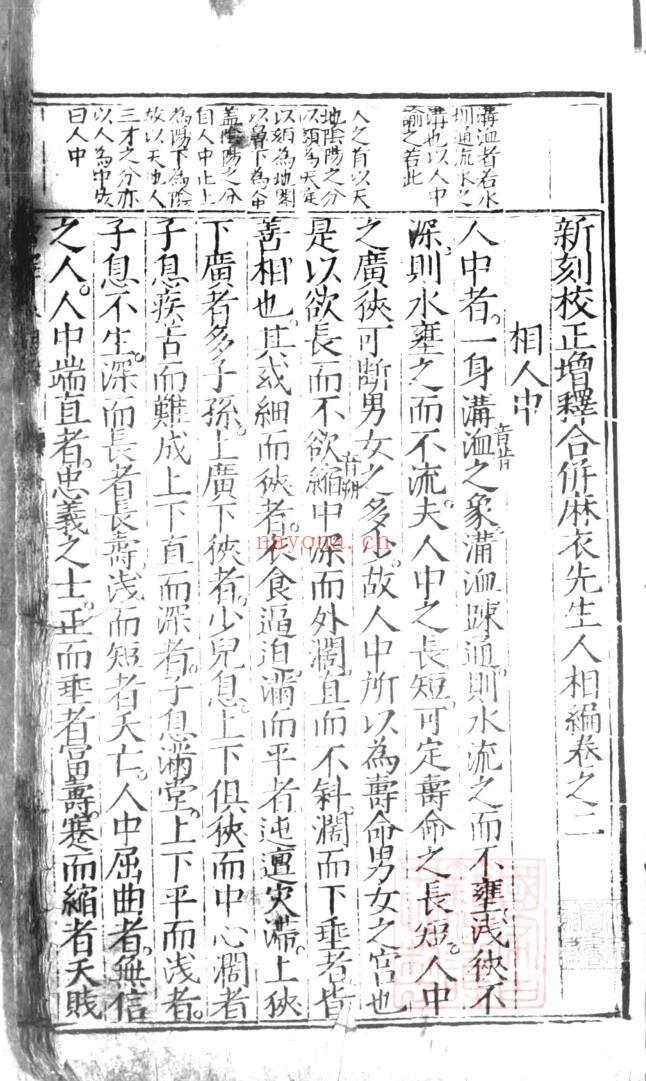 新刻校正增釋合併麻衣先生人相編卷之二
相人中
人中者。一身溝洫之象溝洫踈通。則水流之而不壅淺狹不
音旨
深。則水壅之而不流。夫人中之長短。可定壽命之長短。人中
之廣狹可斷男女之多少。故人中所以為壽命男女之宮也
是以欲長而不欲縮中深而外濶。直而不斜。濶而下垂者皆
音朔
善相也。其或細而狹者。衣食逼迫。滿而平者。迍邅灾滯。上狹
下廣者多子孫。上廣下狹者。少兒息。上下俱狹而中心濶者
子息疾苦而難成上下直而深者。子息滿堂。上下平而淺者。
子息不生。深而長者長壽。淺而短者夭亡。人中屈曲者。無信
之人。人中端直者。忠義之士。正而垂者富壽。蹇而縮者夭賤
溝洫者若水
圳通流水之
溝也以人中
諭之若此
人之首以天
地陰陽之分
以額為天定
以頦為地閣
以鼻下為人中
盖陰陽之分
自人中止上
為陽下為陰
故以天地人
三才之分亦
以人為中故
曰人中
nayona.cn